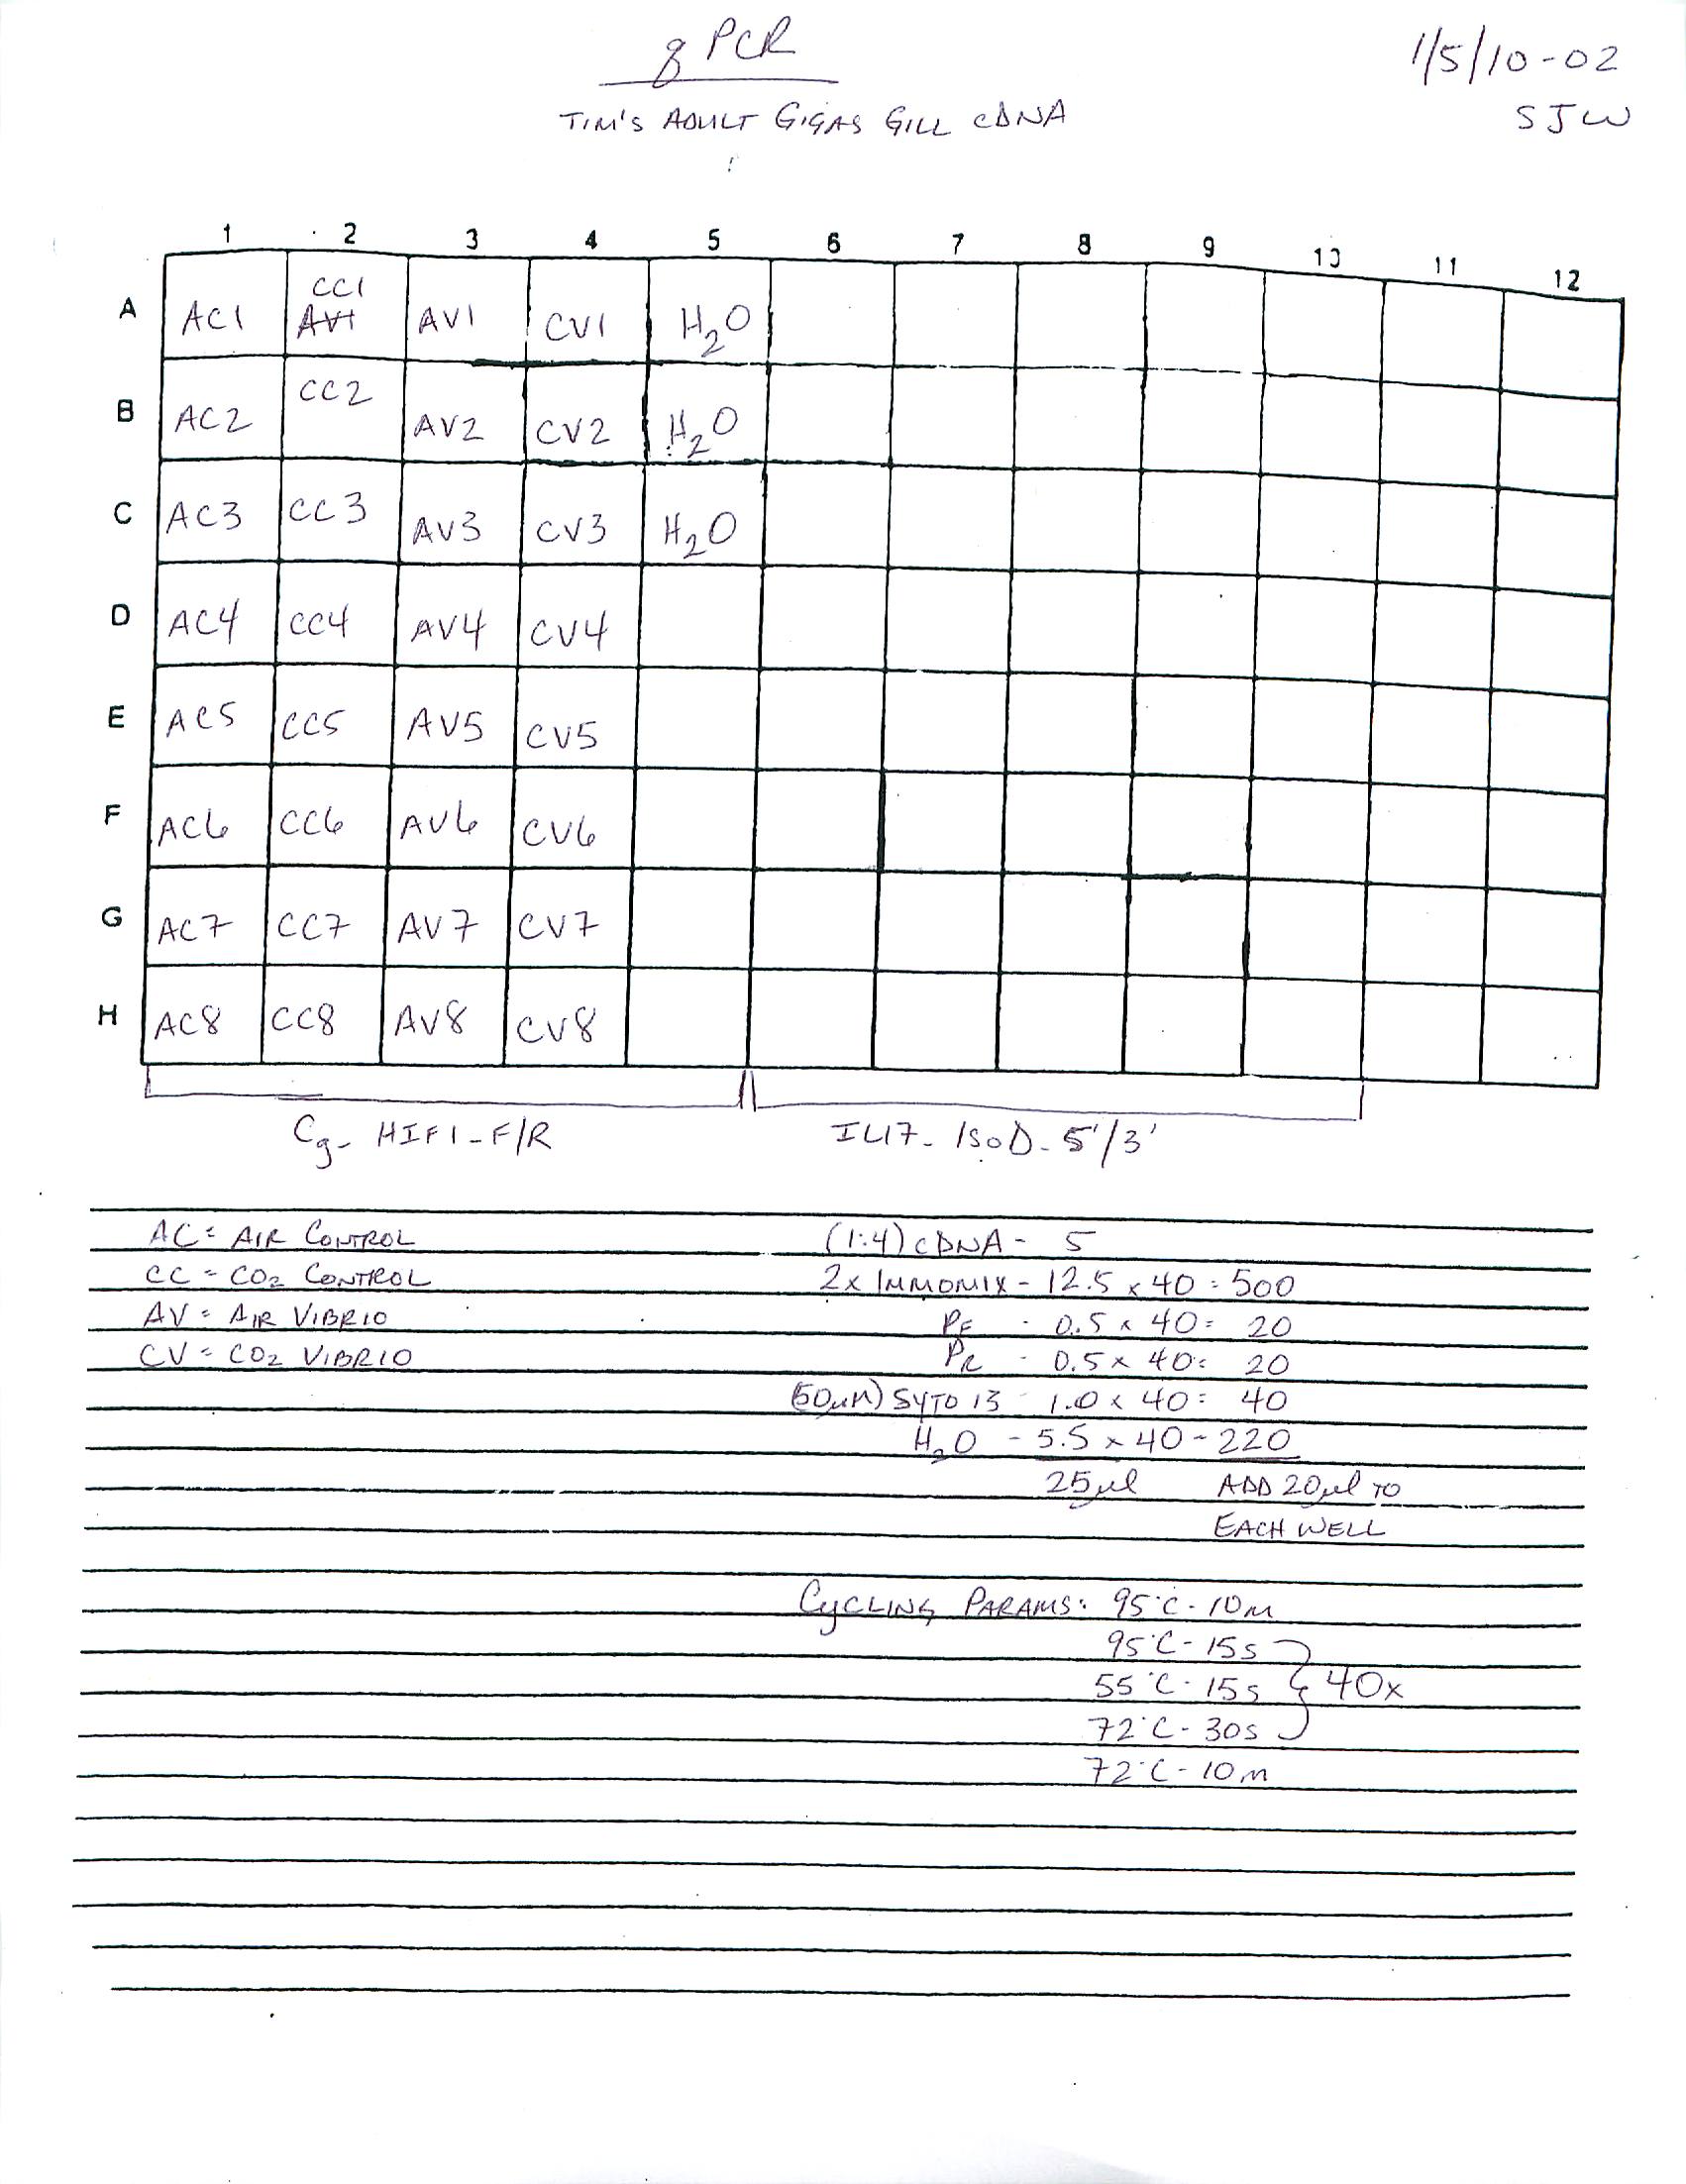 qPCR
1/5/10-02
SJW
TIM'S ADULT GIGAS GILL cDNA
1 2 3 4 5 6 7 8 9 10 11 12
A AC1 CC1 AV1 AV1 CV1 H2O
B AC2 CC2 AV2 CV2 H2O
C AC3 CC3 AV3 CV3 H2O
D AC4 CC4 AV4 CV4
E AC5 CC5 AV5 CV5
F AC6 CC6 AV6 CV6
G AC7 CC7 AV7 CV7
H AC8 CC8 AV8 CV8
Cg-HIF1-F/R IL17-IsoD-5'/3'
AC = AIR CONTROL
CC = CO2 CONTROL
AV = AIR VIBRIO
CV = CO2 VIBRIO
(1:4) cDNA - 5
2x IMMOMIX - 12.5 x 40 = 500
PF - 0.5 x 40 = 20
PR - 0.5 x 40 = 20
(50µM) SYTO 13 - 1.0 x 40 = 40
H2O - 5.5 x 40 - 220
25µl ADD 20µl TO
EACH WELL
CYCLING PARAMS: 95°C - 10m
95°C - 15s
55°C - 15s } 40x
72°C - 30s
72°C - 10m